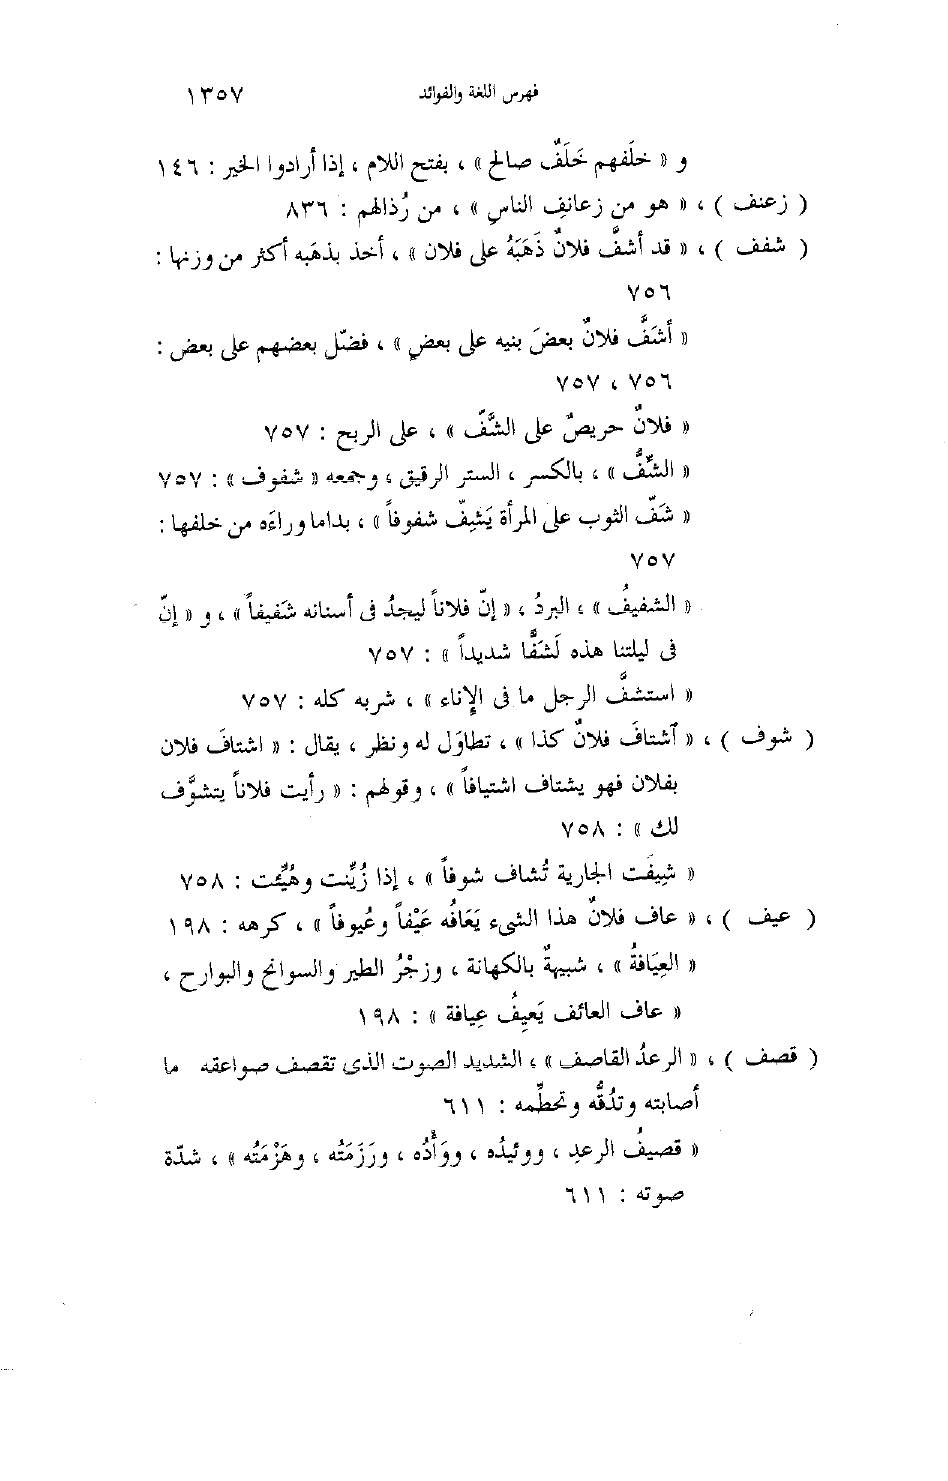 فهرس اللغة والفوائد ١٣٥٧
و « خلَفهم خَلَفٌ صالح » ، بفتح اللام ، إذا أرادوا الخير : ١٤٦
( زعنف ) ، « هو من زعانفِ الناسِ » ، من رُذالهم : ٨٣٦
( شفف ) ، « قد أشفَّ فلانٌ ذَهَبَهُ على فلان » ، أخذ بذهَبه أكثر من وزنها :
٧٥٦
« أشَفَّ فلانٌ بعضَ بنيه على بعضٍ » ، فضّل بعضهم على بعض :
٧٥٦ ، ٧٥٧
« فلانٌ حريصٌ على الشَّفّ » ، على الربح : ٧٥٧
« الشِّفُّ » ، بالكسر ، الستر الرقيق ، وجمعه « شفوف » : ٧٥٧
« شَفّ الثوب على المرأة يَشِفّ شفوفاً » ، بداما وراءَه من خلفها :
٧٥٧
« الشفيفُ » ، البردُ ، « إنّ فلاناً ليجدُ فى أسنانه شَفيفاً » ، و « إنّ
فى ليلتنا هذه لَشَفًّا شديداً » : ٧٥٧
« استشفَّ الرجل ما فى الإناء » ، شربه كله : ٧٥٧
( شوف ) ، « ٱشتافَ فلانٌ كذا » ، تطاوَل له ونظر ، يقال : « اشتافَ فلان
بفلان فهو يشتاف اشتيافاً » ، وقولهم : « رأيت فلاناً يتشوَّف
لك » : ٧٥٨
« شيِفَت الجارية تُشاف شوفاً » ، إذا زُيِّنت وهُيِّئت : ٧٥٨
( عيف ) ، « عاف فلانٌ هذا الشىء يَعَافُه عَيْفاً وعُيوفاً » ، كرهه : ١٩٨
« العِيَافةُ » ، شبيهةٌ بالكهانة ، وزجْرُ الطير والسوانح والبوارح ،
« عاف العائف يَعيِفُ عِيافة » : ١٩٨
( قصف ) ، « الرعدُ القاصف » ، الشديد الصوت الذى تقصف صواعقه ما
أصابته وتدُقُّه وتحطِّمه : ٦١١
« قصيفُ الرعدِ ، ووئيدُه ، ووَأْدُه ، ورَزَمَتُه ، وهَزْمَتُه » ، شدّة
صوته : ٦١١